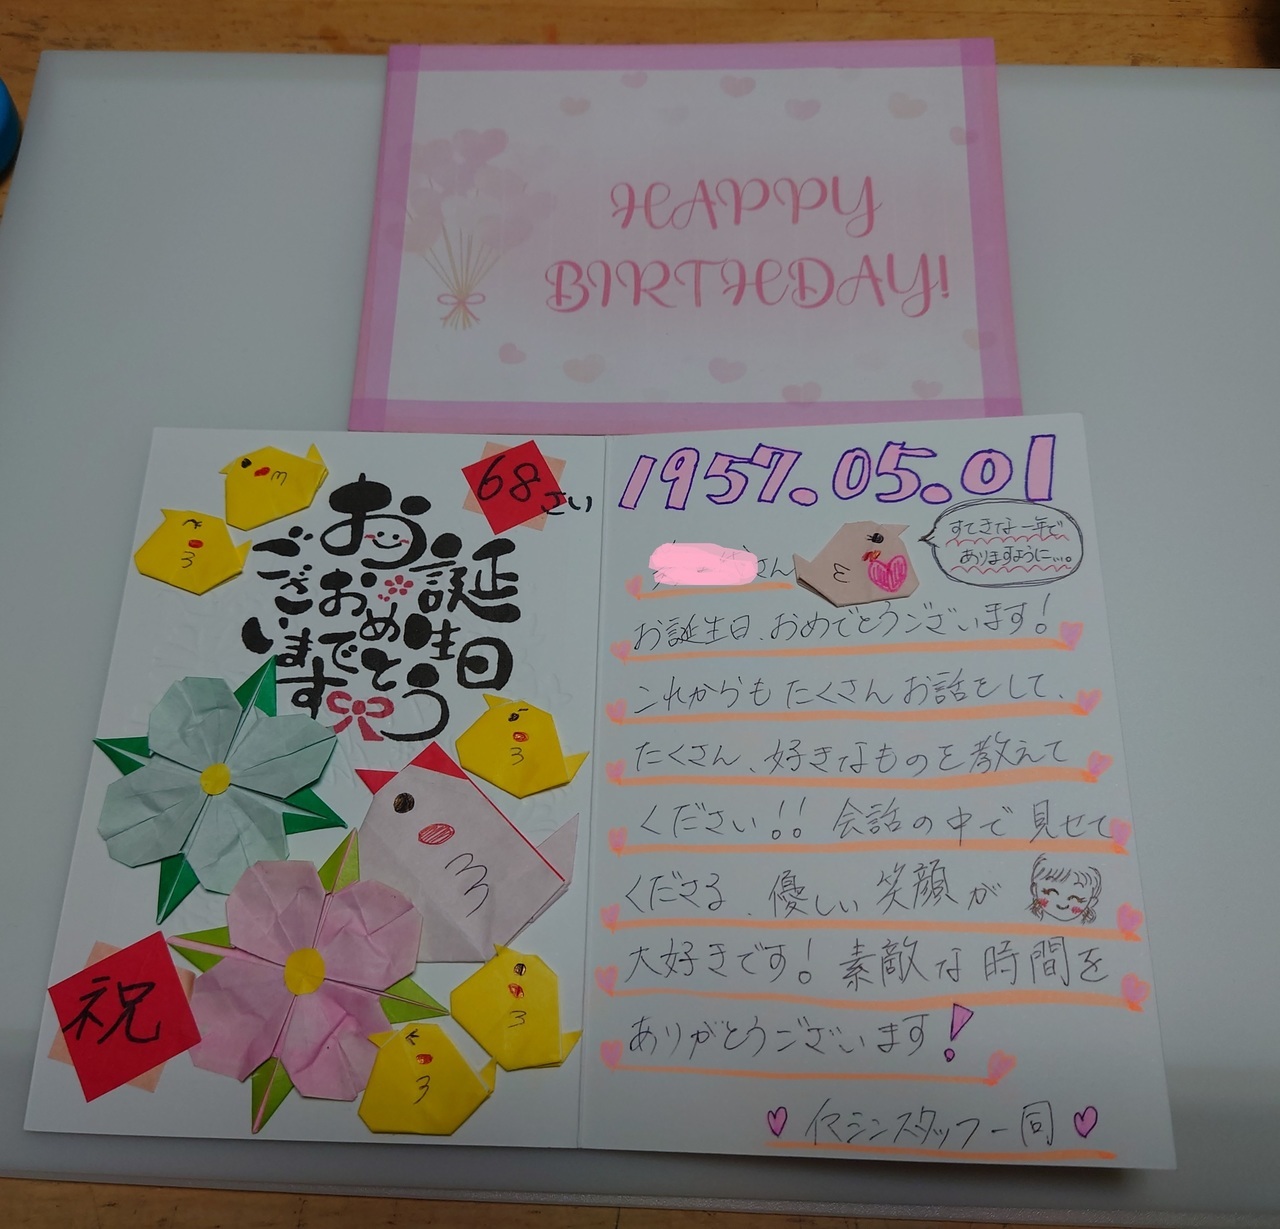 HAPPY
BIRTHDAY!
68さい
お誕生日
おめでとう
ございます
祝
1957.05.01
さん
すてきな一年で
ありますように…。
お誕生日、おめでとうございます！
これからもたくさんお話をして、
たくさん、好きなものを教えて
ください!! 会話の中で見せて
くださる、優しい笑顔が
大好きです！素敵な時間を
ありがとうございます！
スタッフ一同